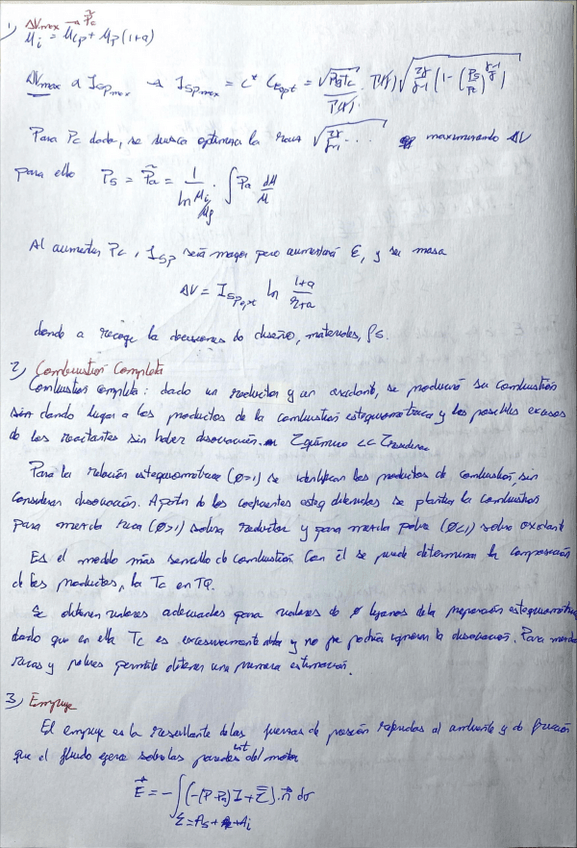 1) ΔV max → P̃c
Mi = Mcp + Mp (1+a)
ΔVmax α Isp max → Isp max = c* CEopt = √(RgTc) / Γ(γ) · Γ(γ) √(2γ/(γ-1) (1 - (Ps/Pc)^((γ-1)/γ)))
Para Pc dada, se busca optimizar la √(2γ/(γ-1) ... maximizando ΔV
para ello Ps = P̃a = 1/(ln Mi/Mf) · ∫ Pa dM/M
Al aumentar Pc, Isp será mayor pero aumentará ε, y su masa
ΔV = Isp opt ln (1+a)/(r+a)
donde a recoge la decisiones de diseño, materiales, ρs.
2) Combustion Completa
Combustion completa: dado un reductor y un oxidante, se producirá su combustión
sin dando lugar a los productos de la combustión estequiométrica y los posibles excesos
de los reactantes sin haber disociación. Zquímico << Zresidencia
Para la relación estequiométrica (Ø=1) se identifican los productos de combustión, sin
considerar disociación. A partir de los coeficientes esteq obtenidos se plantea la combustión
para mezcla rica (Ø>1) sobra reductor y para mezcla pobre (Ø<1) sobra oxidante
Es el modelo más sencillo de combustión. Con él se puede determinar la composición
de los productos, la Tc en TQ.
Se obtienen valores adecuados para valores de Ø lejanos de la proporción estequiométrica
dado que en ella Tc es excesivamente alta y no se podría ignorar la disociación. Para mezclas
ricas y pobres permite obtener una primera estimación.
3) Empuje
El empuje es la resultante de las fuerzas de presión referidas al ambiente y de fricción
que el fluido ejerce sobre las paredes int del motor
E⃗ = -∫ (-(P-Pa) I + τ̄) · n⃗ dσ
Σ = As + Ai